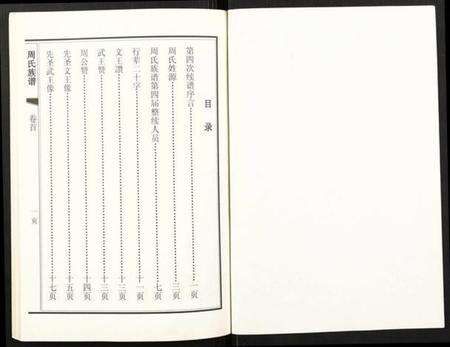 目录
第四次续谱序言 一页
周氏姓源 三页
周氏族谱第四届整续人员 七页
行辈二十字 十一页
文王讚 十二页
武王赞 十三页
周公赞 十四页
先圣文王像 十五页
先圣武王像 十七页
周氏族谱
卷首
一页